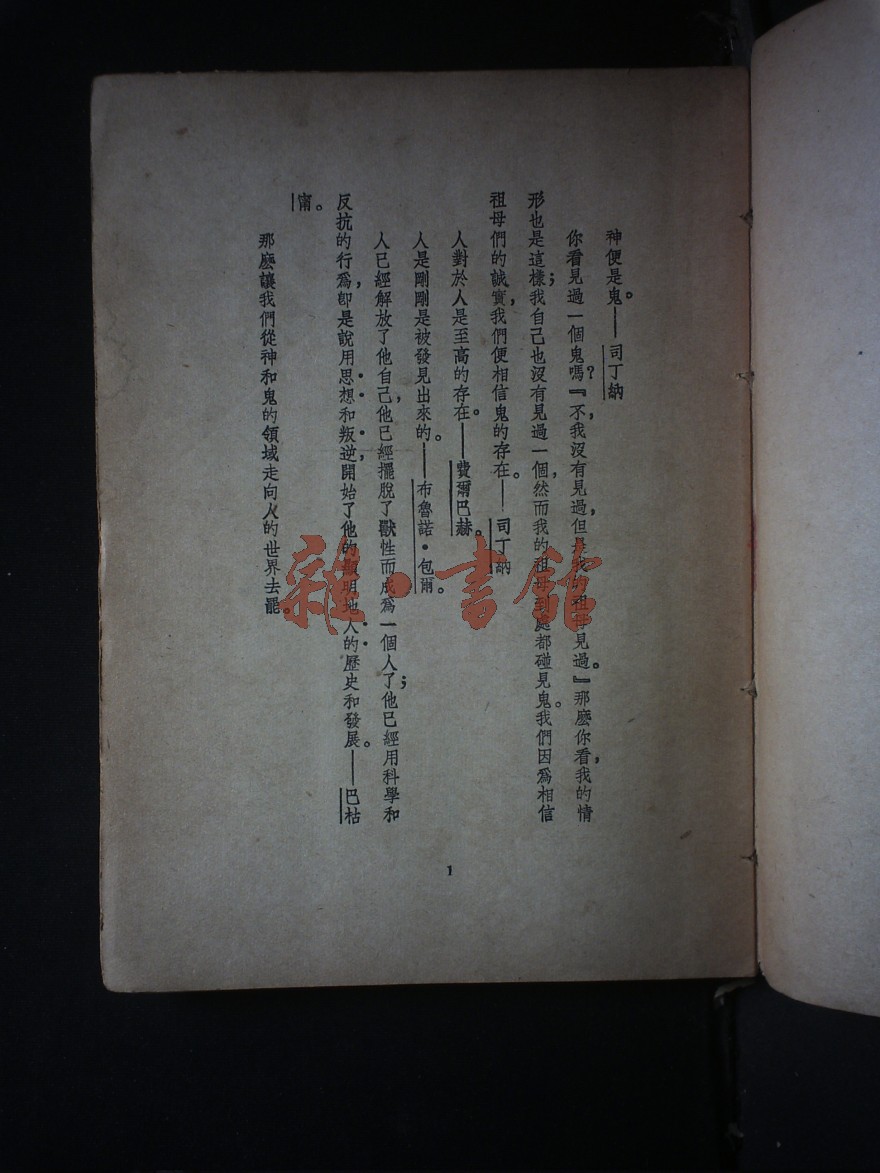 神便是鬼。——司丁納
你看見過一個鬼嗎？『不，我沒有見過，但是我的祖母見過。』那麽你看，我的情
形也是這樣；我自己也沒有見過一個，然而我的祖母到處都碰見鬼。我們因爲相信
祖母們的誠實，我們便相信鬼的存在。——司丁納
人對於人是至高的存在。——費爾巴赫。
人是剛剛是被發見出來的。——布魯諾·包爾。
人已經解放了他自己，他已經擺脫了獸性而成爲一個人了；他已經用科學和
反抗的行爲，卽是說用思想和叛逆，開始了他的顯明地人的歷史和發展。——巴枯
甯。
那麽讓我們從神和鬼的領域走向人的世界去罷。
1
雜·書館